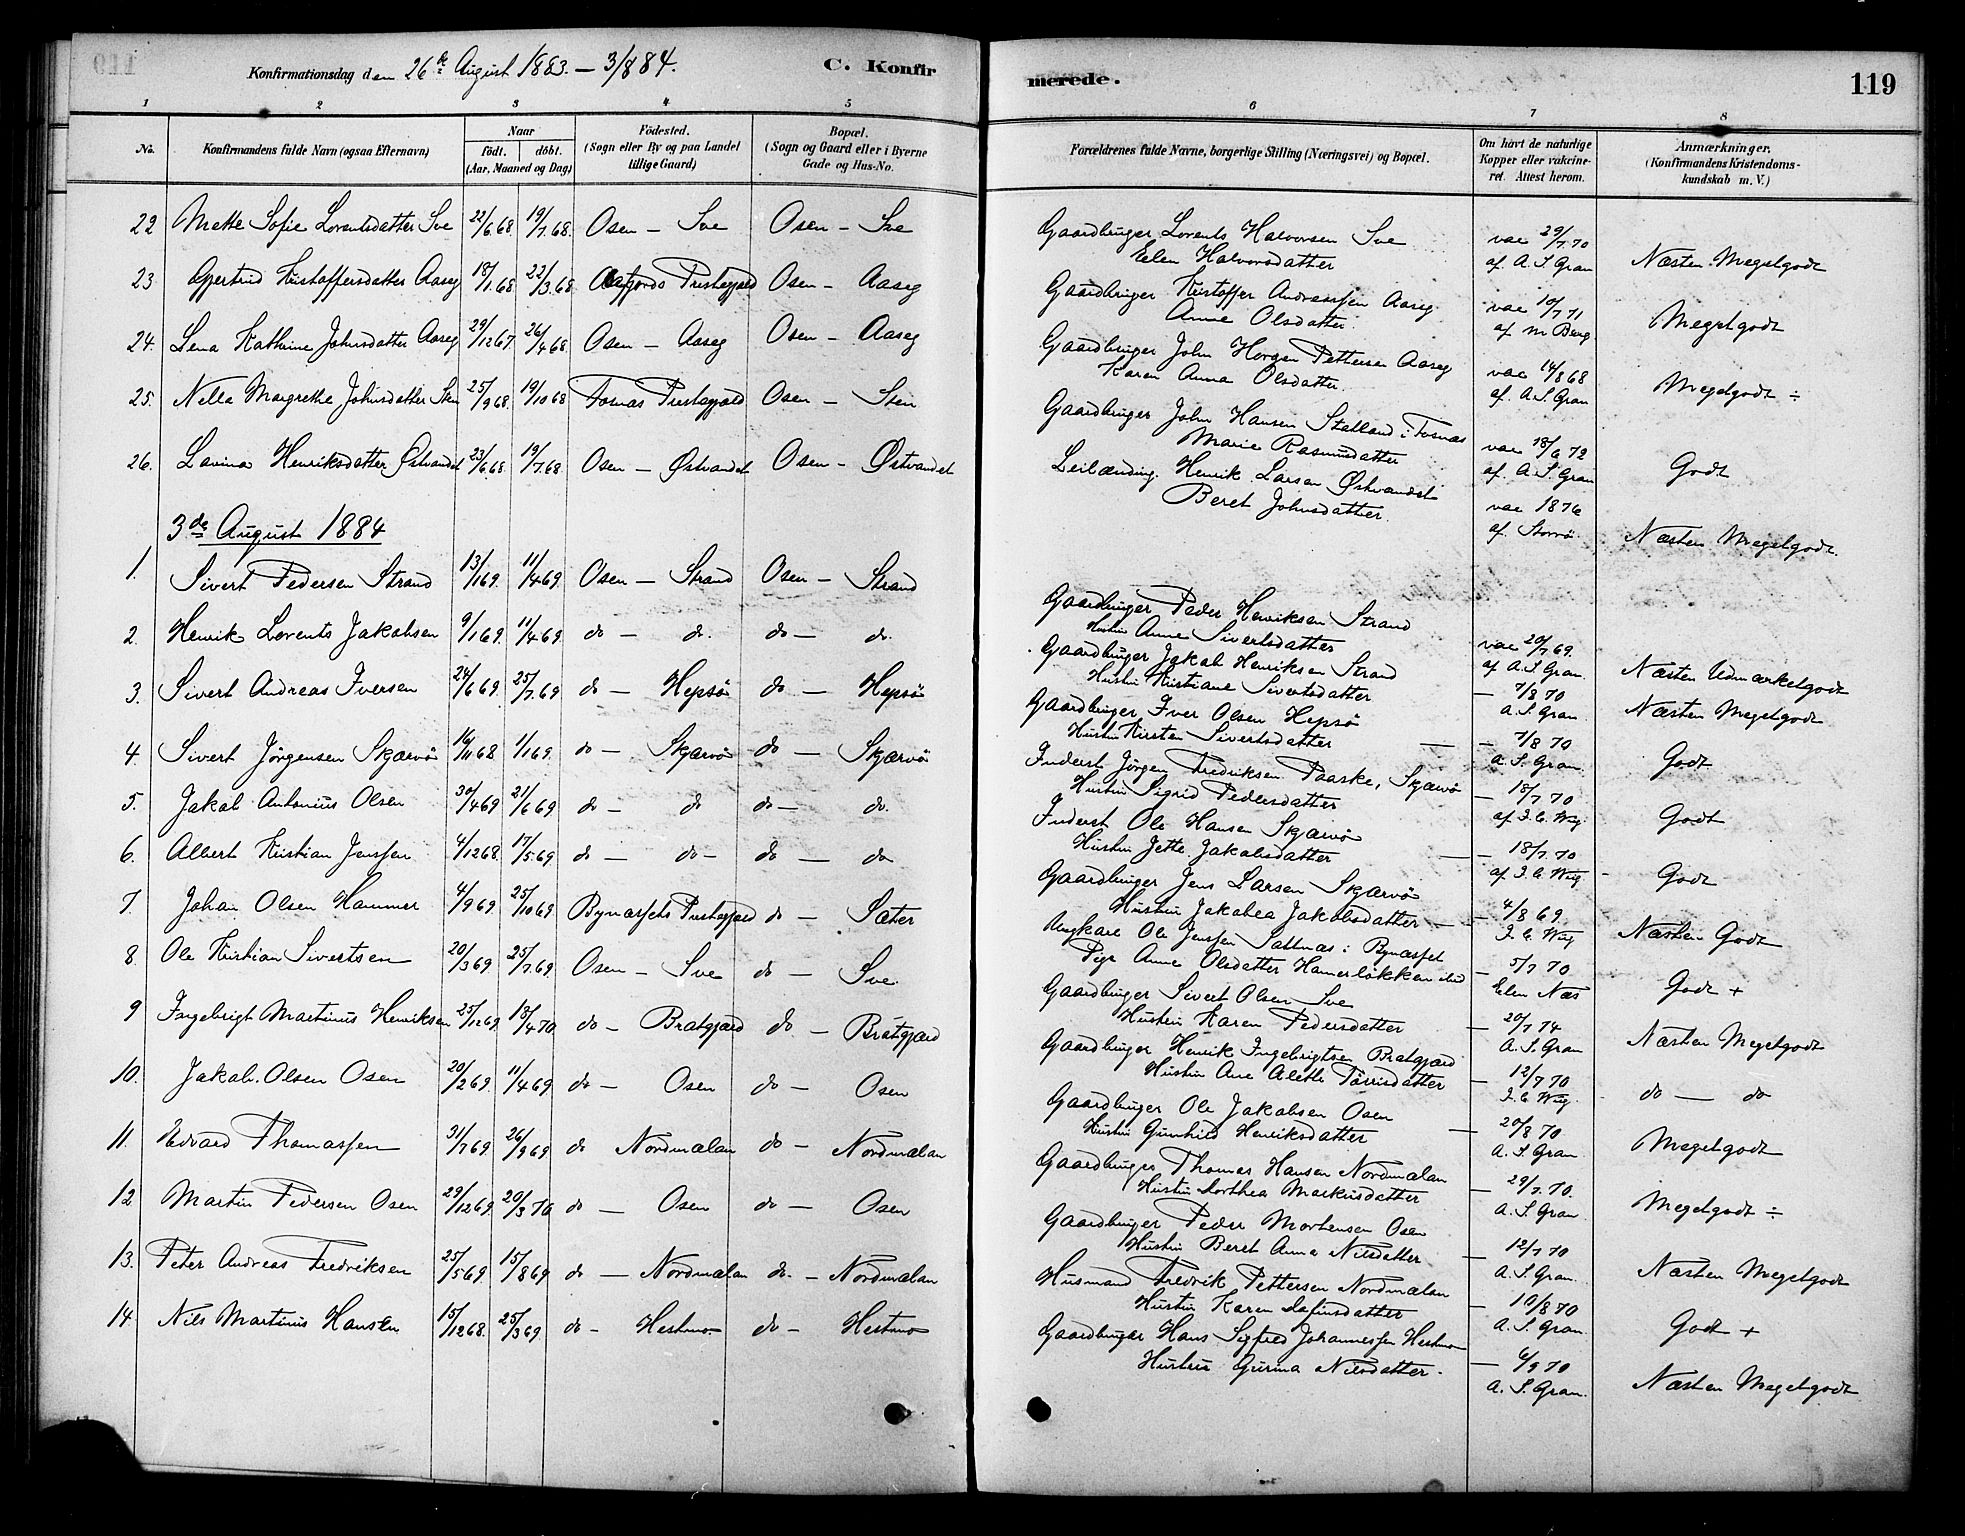 Konfirmationsdag den 26de August 1883. – 3/8 84.
C. Konfirmerede.
119
1 2 3 4 5 6 7 8
No.
Konfirmandens fulde Navn (ogsaa Efternavn)
Naar
født. døbt.
(Aar, Maaned og Dag)
Födested.
(Sogn eller By og paa Landet tillige Gaard)
Bopæl.
(Sogn og Gaard eller i Byerne Gade og Hus-No.
Forældrenes fulde Navne, borgerlige Stilling (Næringsvei) og Bopæl.
Om havt de naturlige Kopper eller vaccineret. Attest herom.
Anmærkninger.
(Konfirmandens Kristendomskundskab m. V.)
22 Mette Sofie Lorentsdatter Sve 22/6 68. 19/7 68. Osen – Sve Osen – Sve Gaardbruger Lorents Halvorsen Sve vac 29/7 70
Elen Halvorsdatter af A. S. Gran Næsten Megetgodt
23 Gjertrud Kristoffersdatter Aaseg 18/1 68 22/3 68 Aafjords Præstegjæld Osen – Aaseg Gaardbruger Kristoffer Andreassen Aaseg vac 10/7 71
Anne Olsdatter. af M. Berg Megetgodt
24. Lena Kathrine Johnsdatter Aaseg 29/12 67. 26/4 68. Osen – Aaseg Osen – Aaseg Gaardbruger John Horgen Pettersen Aaseg vac 14/8 68
Karen Anna Olsdatter. af. A. S. Gran Megetgodt ÷
25. Nella Margrethe Johnsdatter Sten 25/9 68. 19/10 68 Fosnæs Præstegjæld Osen – Sten Gaardbruger John Hansen Statland i Fosnæs vac 18/6 72
Marie Rasmusdatter af. A. S. Gran Godt
26. Lavina Henriksdatter Østvandet 23/6 68. 19/7 68. Osen – Østvandet Osen – Østvandet Leilænding Henrik Larsen Østvandet vac 1876
Beret Johnsdatter. af. Storrö. Næsten Megetgodt.
3de August 1884
1. Sivert Pedersen Strand 13/1 69. 11/4 69. Osen – Strand Osen – Strand Gaardbruger Peder Henriksen Strand vac 20/7 69.
Hustru Anne Sivertsdatter af A. S. Gran. Næsten Udmærketgodt
2. Henrik Lorents Jakobsen 9/1 69. 11/4 69. do – do. do – do. Gaardbruger Jakob Henriksen Strand – 7/8 70
Hustru Kristiane Sivertsdatter A. S. Gran. Næsten Megetgodt
3. Sivert Andreas Iversen 24/6 69. 25/7 69 do – Hepsö do – Hepsö Gaardbruger Iver Olsen Hepsö – 7/8 70
Hustru Kirsten Sivertsdatter A. S. Gran. Godt
4. Sivert Jörgensen Skjærvö 16/11 68 1/1 69. do – Skjærvö do – Skjærvö Inderst Jörgen Fredriksen Paaske, Skjærvö – 18/7 70
Hustru Sigrid Pedersdatter af J. C. Wiig. Godt
5. Jakob Antonius Olsen 30/4 69 21/6 69 do – do do – do. Inderst Ole Hansen Skjærvö – 18/7. 70
Hustru Jette Jakobsdatter af J. C. Wiig. Godt
6. Albert Kristian Jenssen 4/12 68. 17/5 69 do – do – do – do Gaardbruger Jens Larsen Skjærvö – 4/8 69.
Hustru Jakobea Jakobsdatter J. C. Wiig Næsten Godt
7. Johan Olsen Hammer 4/9 69 25/10 69 Bynæssets Præstegjæld do – Sæter Ungkarl Ole Jenssen Saltnæs i Bynæsset – 5/7 70
Pige Anne Olsdatter Hamerløkken ibid Elen Næs Godt +
8. Ole Kristian Sivertsen 20/3 69 25/7 69. Osen – Sve do – Sve. Gaardbruger Sivert Olsen Sve – 20/7 74
Hustru Karen Pedersdatter A. S. Gran Næsten Megetgodt
9 Ingebrigt Martinus Henriksen 25/12 69. 18/4 70. do – Bratgjærd do – Bratgjærd Gaardbruger Henrik Ingebrigtsen Bratgjærd – 12/7 70
Hustru Ane Alette Tørrisdatter J. C. Wiig. do – do
10. Jakob Olsen Osen 20/2 69. 11/4 69 do – Osen do – Osen Gaardbruger Ole Jakobsen Osen – 20/8 70
Hustru Gunhild Henriksdatter A. S. Gran. Megetgodt
11. Edvard Thomassen 31/7 69 26/9 69 do Nordmælan do – Nordmælan Gaardbruger Thomas Hansen Nordmælan – 29/7. 70.
Hustru Dorthea Markusdatter A. S. Gran Megetgodt ÷
12 Martin Pedersen Osen 29/12 69. 20/3 70 do – Osen do – Osen Gaardbruger Peder Mortensen Osen – 12/7 70
Hustru Beret Anna Nilsdatter A. S. Gran. Næsten Megetgodt
13. Peter Andreas Fredriksen 25/5 69. 15/8 69 do – Nordmælan do. – Nordmælan Husmand Fredrik Pettersen Nordmælan – 10/8 70
Hustru Karen Dafinsdatter A. S. Gran. Godt +
14. Nils Martinus Hansen 15/12 68. 25/3 69. do – Hestmo do – Hestmo Gaardbruger Hans Sigfred Johannessen Hestmo – 6/9 70
Hustru Gurina Nilsdatter. A. S. Gran. Næsten Megetgodt